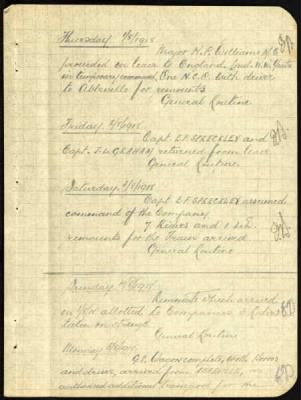 Thursday 1/8/1918
Major H.P. Williams M.C.
proceeded on leave to England. Lieut. W.W.
in temporary command. One N.C.O. with driver
to Abbeville for remounts
General Routine
Friday 2/8/1918
Capt E.F. SPECKLEY and
Capt. J.W. GRAHAM returned from leave
General Routine
Saturday 3/8/1918
Capt E.F. SPECKLEY assumed
command of the Company
7 Riders and 1
remounts for the Train arrived
General Routine
Sunday 4/8/1918
Remounts which arrived
on allotted to Companies & Riders
taken on strength
General Routine
Monday 5/8/1918
G.S. Wagon complete, with Horses
and driver, arrived from
authorised additional transport for the